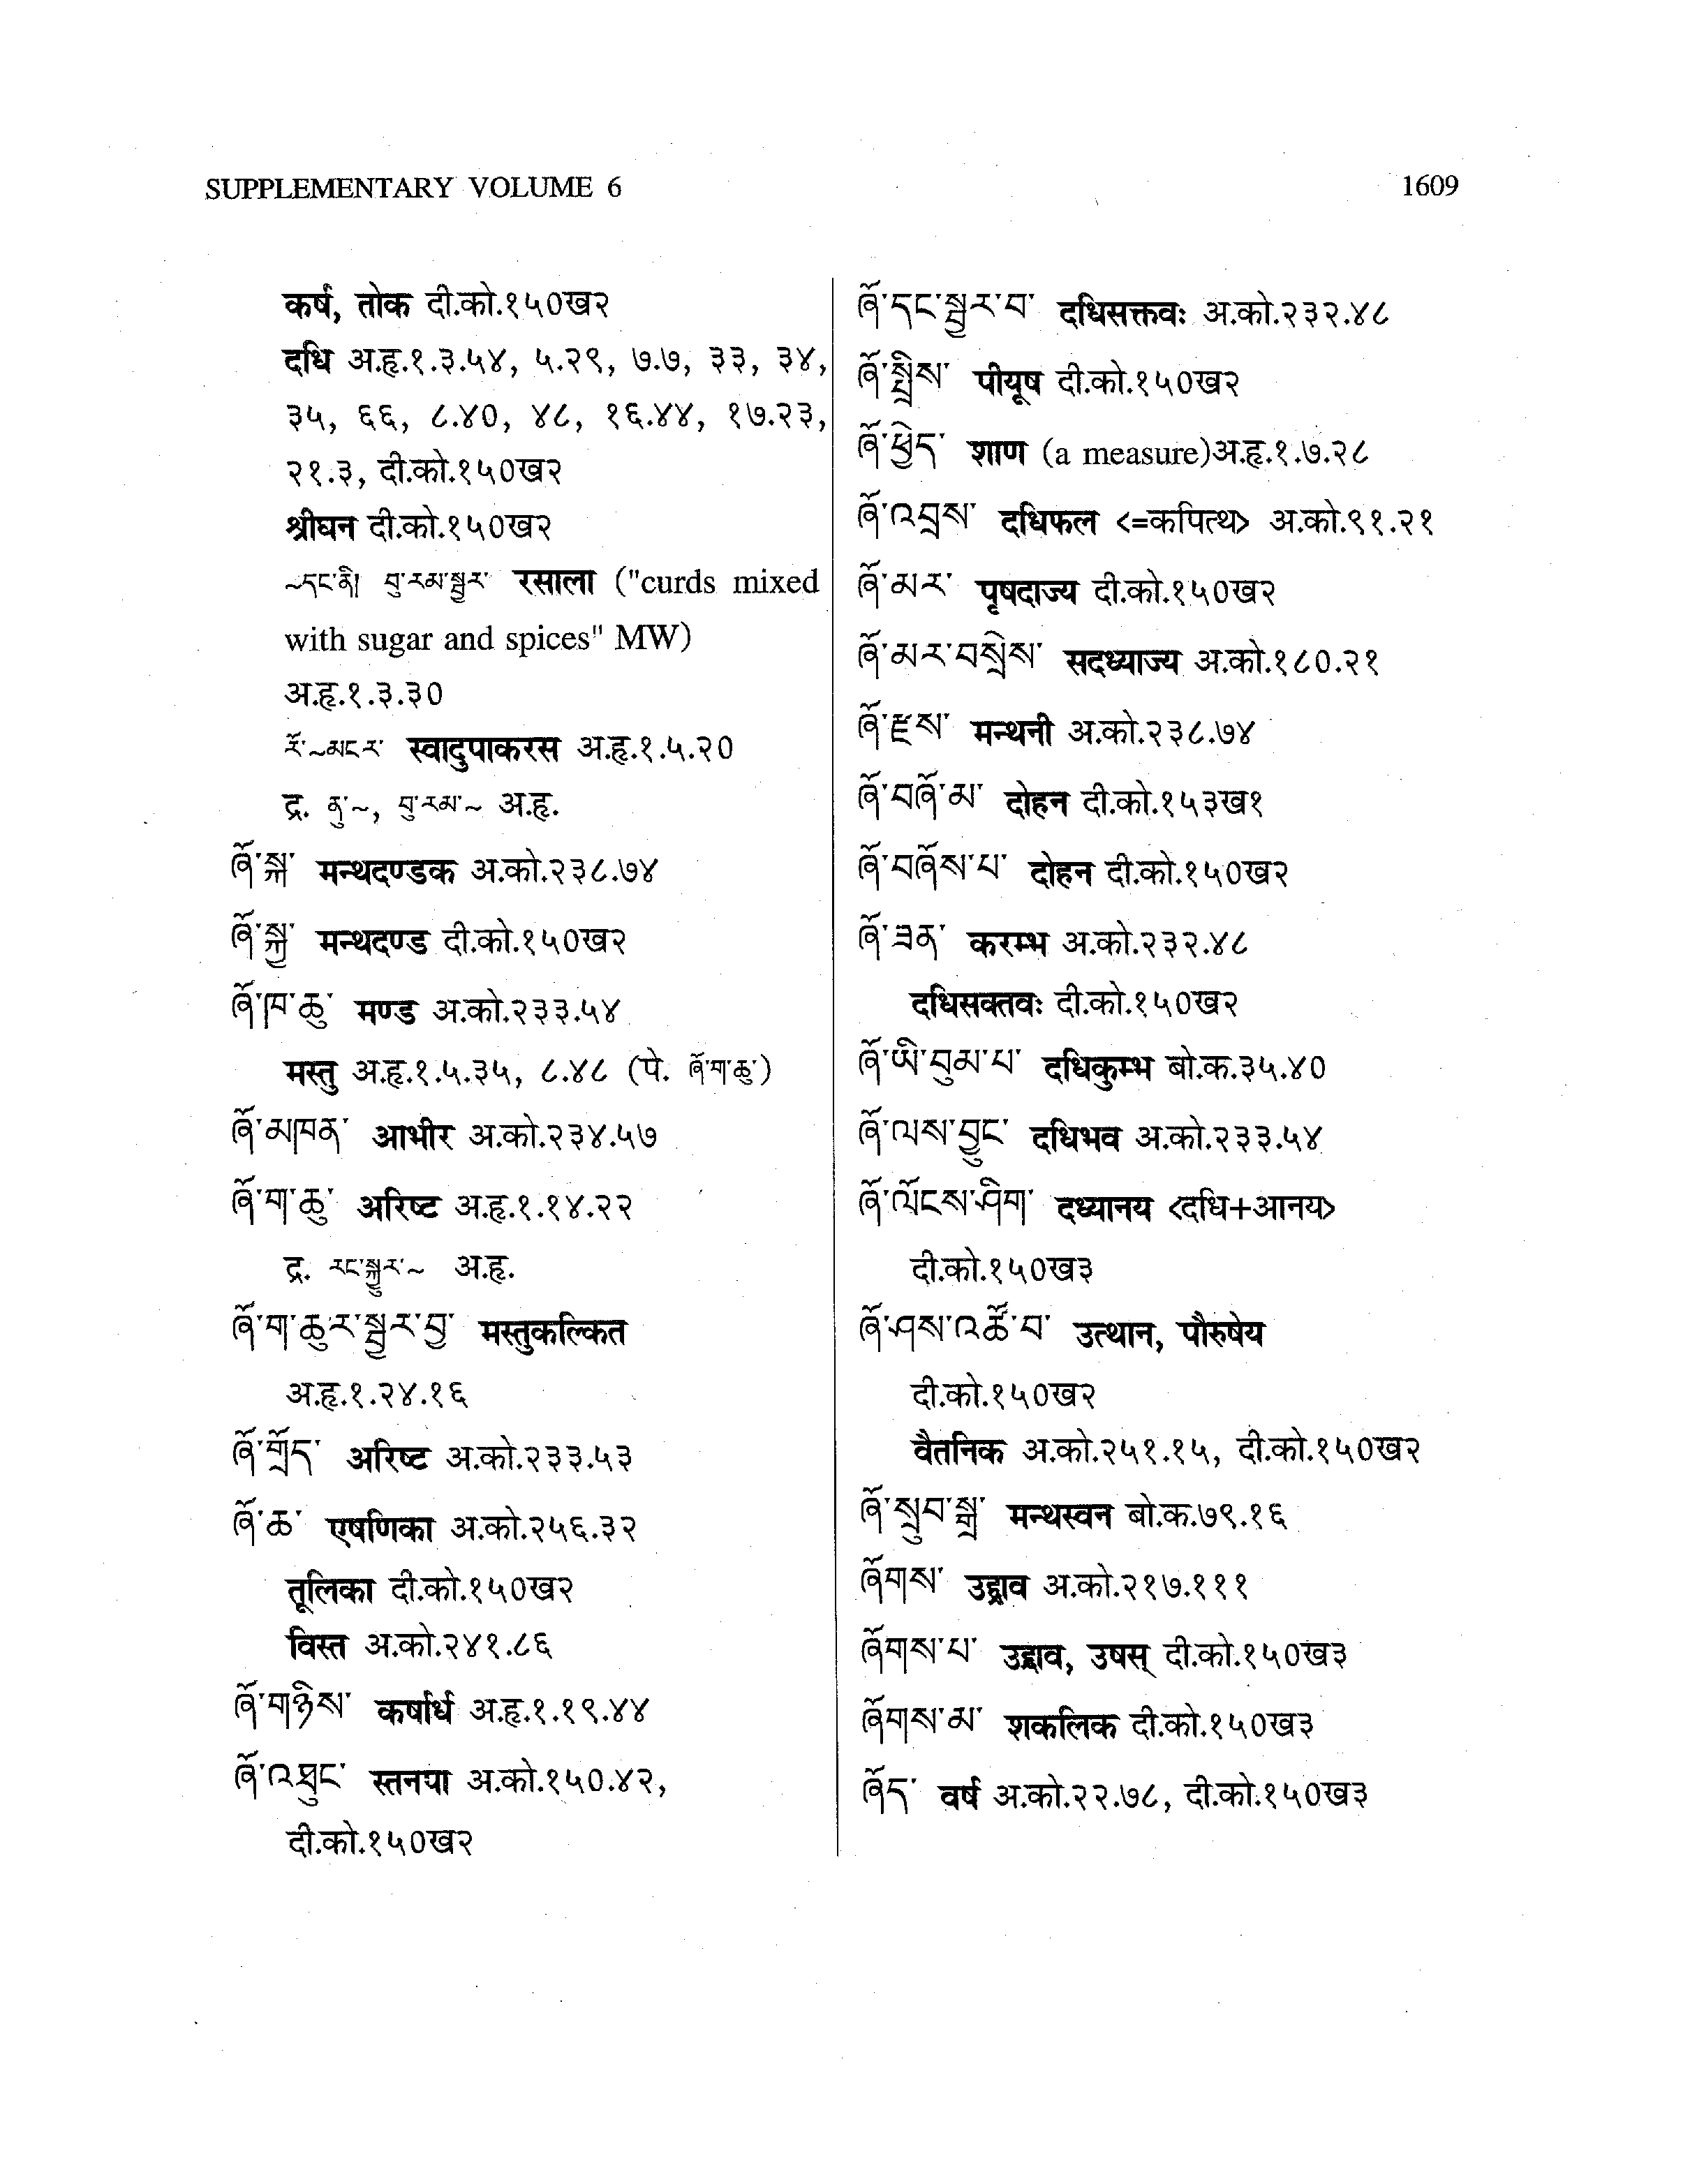 SUPPLEMENTARY VOLUME 6 1609
कर्ष, तोक दी.को.१५०ख२
दधि अ.हृ.१.३.५४, ५.२९, ७.७, ३३, ३४,
३५, ६६, ८.४०, ४८, १६.४४, १७.२३,
२१.३, दी.को.१५०ख२
श्रीघन दी.को.१५०ख२
~དང་ནི། བུ་རམ་སྦྱར་ रसाला ("curds mixed
with sugar and spices" MW)
अ.हृ.१.३.३०
རོ་~མངར་ स्वादुपाकरस अ.हृ.१.५.२०
द्र. ནུ་~, བུ་རམ་~ अ.हृ.
ཞོ་སྐ་ मन्थदण्डक अ.को.२३८.७४
ཞོ་སྐྱ་ मन्थदण्ड दी.को.१५०ख२
ཞོ་ཁ་ཆུ་ मण्ड अ.को.२३३.५४
मस्तु अ.हृ.१.५.३५, ८.४८ (पे. ཞོ་ག་ཆུ་)
ཞོ་མཁན་ आभीर अ.को.२३४.५७
ཞོ་ག་ཆུ་ अरिष्ट अ.हृ.१.१४.२२
द्र. རང་སྐྱུར་~ अ.हृ.
ཞོ་ག་ཆུར་སྦྱར་བྱ་ मस्तुकल्कित
अ.हृ.१.२४.१६
ཞོ་གྲོད་ अरिष्ट अ.को.२३३.५३
ཞོ་ཆ་ एषणिका अ.को.२५६.३२
तूलिका दी.को.१५०ख२
विस्त अ.को.२४१.८६
ཞོ་གཉིས་ कर्षार्ध अ.हृ.१.१९.४४
ཞོ་འཐུང་ स्तनपा अ.को.१५०.४२,
दी.को.१५०ख२
ཞོ་དང་སྦྱར་བ་ दधिसक्तवः अ.को.२३२.४८
ཞོ་སྤྲིས་ पीयूष दी.को.१५०ख२
ཞོ་ཕྱེད་ शाण (a measure)अ.हृ.१.७.२८
ཞོ་འབྲས་ दधिफल <=कपित्थ> अ.को.९१.२१
ཞོ་མར་ पृषदाज्य दी.को.१५०ख२
ཞོ་མར་བསྲེས་ सदध्याज्य अ.को.१८०.२१
ཞོ་རྫས་ मन्थनी अ.को.२३८.७४
ཞོ་བཞོ་མ་ दोहन दी.को.१५३ख१
ཞོ་བཞོས་པ་ दोहन दी.को.१५०ख२
ཞོ་ཟན་ करम्भ अ.को.२३२.४८
दधिसक्तवः दी.को.१५०ख२
ཞོ་ཡི་བུམ་པ་ दधिकुम्भ बो.क.३५.४०
ཞོ་ལས་བྱུང་ दधिभव अ.को.२३३.५४
ཞོ་ལོངས་ཤིག་ दध्यानय <दधि+आनय>
दी.को.१५०ख३
ཞོ་ཤས་འཚོ་བ་ उत्थान, पौरुषेय
दी.को.१५०ख२
वैतनिक अ.को.२५१.१५, दी.को.१५०ख२
ཞོ་སྲུབ་སྒྲ་ मन्थस्वन बो.क.७९.१६
ཞོགས་ उद्द्राव अ.को.२१७.१११
ཞོགས་པ་ उद्द्राव, उषस् दी.को.१५०ख३
ཞོགས་མ་ शकलिक दी.को.१५०ख३
ཞོད་ वर्ष अ.को.२२.७८, दी.को.१५०ख३